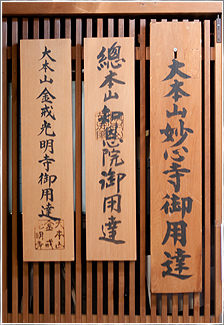 大本山妙心寺御用達
總本山知恩院御用達
大本山金戒光明寺御用達